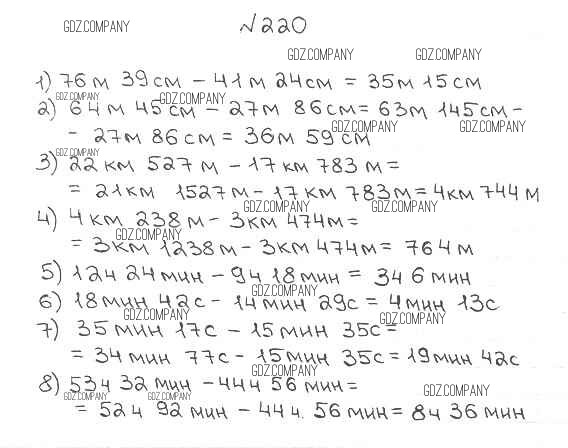 №220
GDZ.COMPANY
GDZ.COMPANY GDZ.COMPANY
1) 76 м 39 см − 41 м 24 см = 35 м 15 см
GDZ.COMPANY GDZ.COMPANY
2) 64 м 45 см − 27 м 86 см = 63 м 145 см −
GDZ.COMPANY GDZ.COMPANY
− 27 м 86 см = 36 м 59 см
GDZ.COMPANY
3) 22 км 527 м − 17 км 783 м =
= 21 км 1527 м − 17 км 783 м = 4 км 744 м
GDZ.COMPANY GDZ.COMPANY
4) 4 км 238 м − 3 км 474 м =
GDZ.COMPANY
= 3 км 1238 м − 3 км 474 м = 764 м
5) 12 ч 24 мин − 9 ч 18 мин = 3 ч 6 мин
GDZ.COMPANY
6) 18 мин 42 с − 14 мин 29 с = 4 мин 13 с
GDZ.COMPANY GDZ.COMPANY
7) 35 мин 17 с − 15 мин 35 с =
= 34 мин 77 с − 15 мин 35 с = 19 мин 42 с
8) 53 ч 32 мин − 44 ч 56 мин =
GDZ.COMPANY GDZ.COMPANY GDZ.COMPANY
= 52 ч 92 мин − 44 ч. 56 мин = 8 ч 36 мин